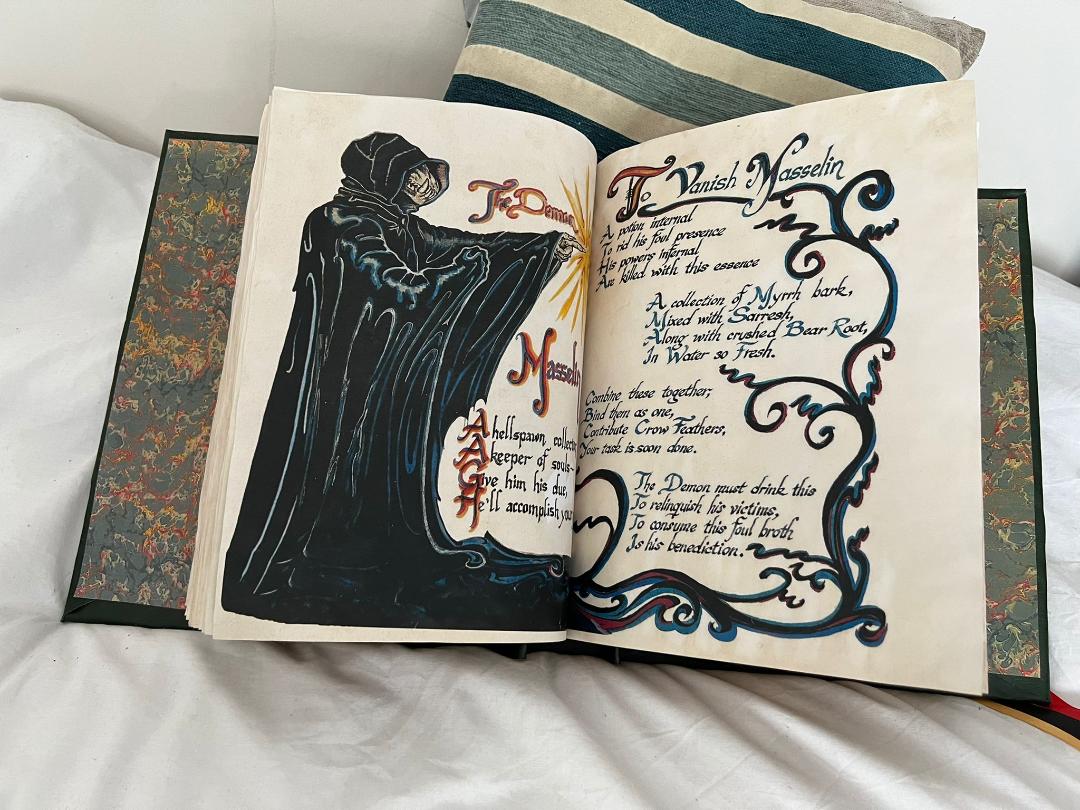 The Demon
Masselin
A hellspawn collector
A keeper of souls~
Give him his due,
He'll accomplish your
To Vanish Masselin
A potion internal
To rid his foul presence
His powers infernal
Are killed with this essence
A collection of Myrrh bark,
Mixed with Sarresh,
Along with crushed Bear Root,
In Water so Fresh.
Combine these together,
Bind them as one,
Contribute Crow Feathers,
Your task is soon done.
The Demon must drink this
To relinquish his victims,
To consume this foul broth
Is his benediction.